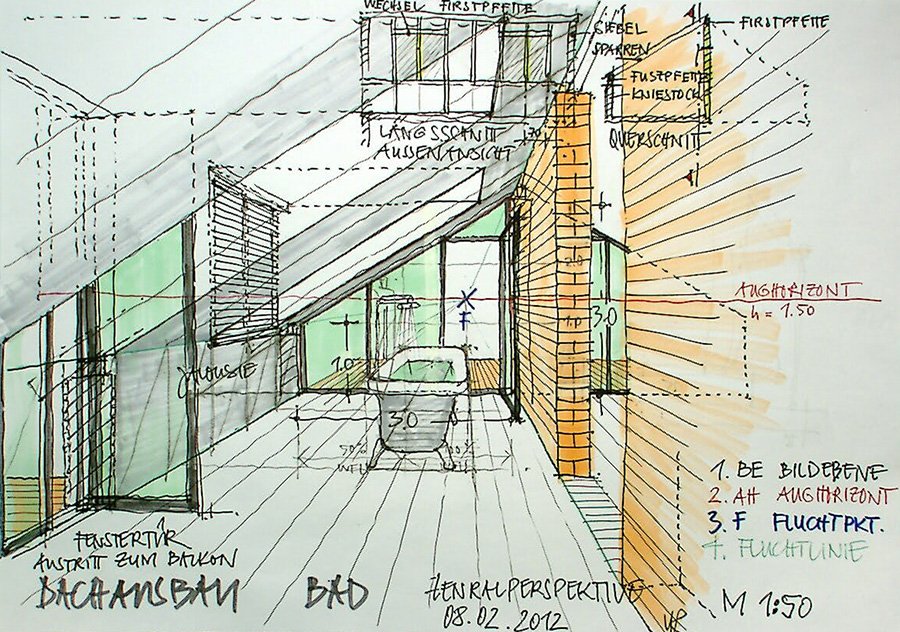 WECHSEL FIRSTPFETTE
GIEBEL
SPARREN
FIRSTPFETTE
FUSSPFETTE
KNIESTOCK
LÄNGSSCHNITT
AUSSENANSICHT
QUERSCHNITT
AUGHORIZONT
h = 1.50
F
2.0
1.0
3.0
1.0
JALOUSIE
3.0
50%
1. BE BILDEBENE
2. AH AUGHORIZONT
3. F FLUCHTPKT.
4. FLUCHTLINIE
FENSTERTÜR
AUSTRITT ZUM BALKON
DACHAUSBAU BAD ZENRALPERSPEKTIVE
08.02.2012
M 1:50